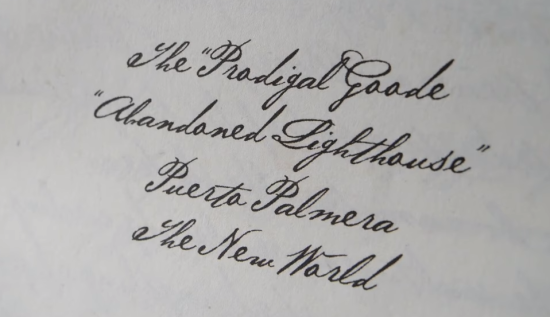 The "Prodigal Goode
"Abandoned Lighthouse"
Puerto Palmera
The New World